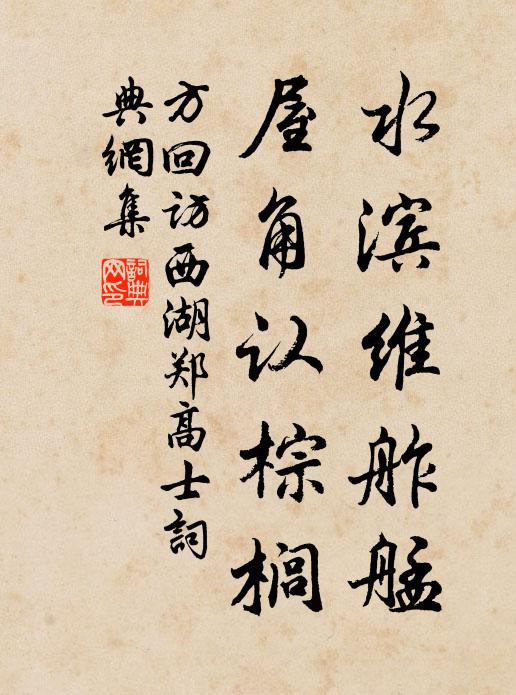 水滨维舴艋
屋角认棕榈
方回访西湖郑高士詞
典網集
詞典
网印